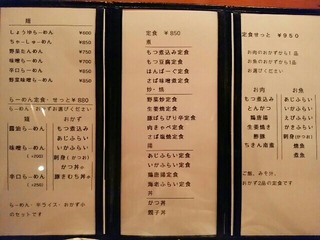 麺
しょうゆらーめん ¥600
ちゃーしゅーめん ¥850
野菜たんめん ¥750
味噌らーめん ¥700
辛口らーめん ¥850
野菜味噌らーめん ¥850
らーめん定食・せっと ¥880
お選びください
麺 おかず
醤油らーめん もつ煮込み
あじふらい
味噌らーめん いかふらい
刺身(かつお)
かつ丼小
辛口らーめん 豚きむち丼小
らーめん・半ライス・おかず小
のセットです
定食 ¥850
煮
もつ煮込み定食
もつ豆腐定食
はんばーぐ定食
さば味噌煮定食
炒・焼
野菜炒定食
生姜焼定食
豚ばらぴり辛定食
肉きゃべ定食
さば塩焼定食
揚
あじふらい定食
いかふらい定食
鶏唐揚定食
海老ふらい定食
丼
かつ丼
親子丼
定食せっと ¥950
お肉のおかずから1品
お魚のおかずから1品
お選びください
お肉 お魚
もつ煮込み あじふらい
とんかつ いかふらい
鶏唐揚 刺身(かつお)
生姜焼き 焼魚
酢豚 煮魚
ちきん南蛮
ご飯、みそ汁、
おかず2品の定食です